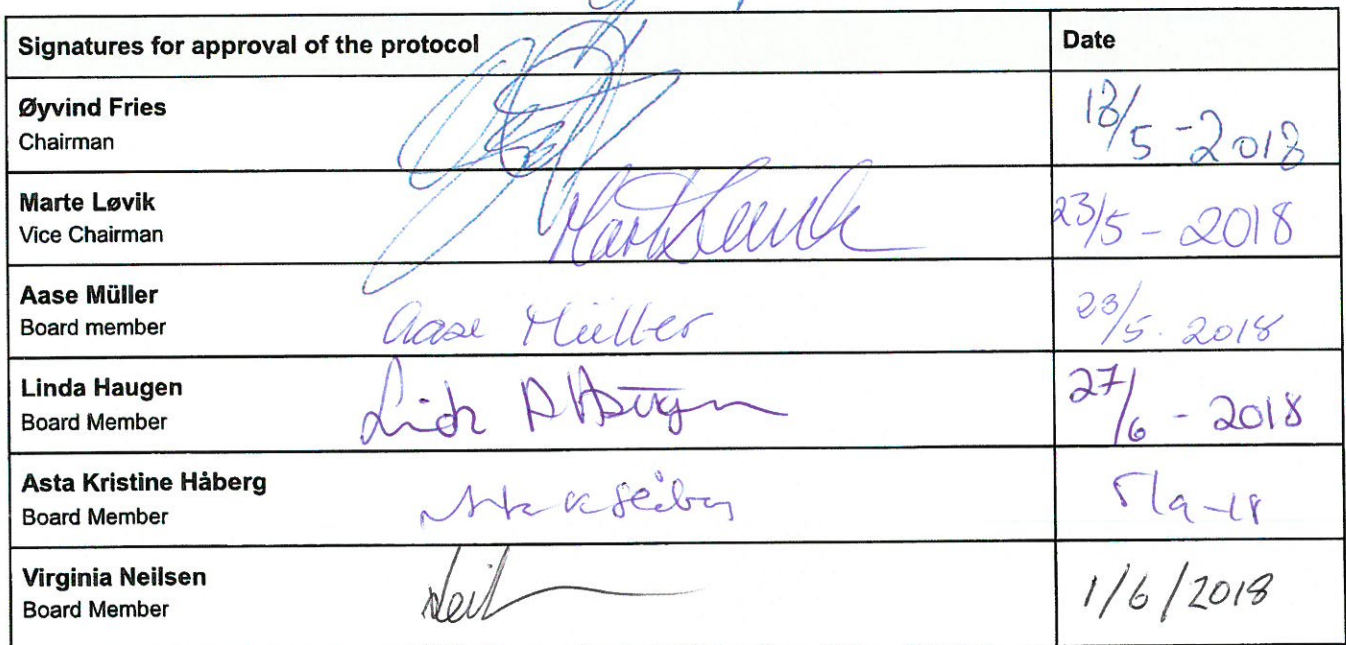 Signatures for approval of the protocol Date
Øyvind Fries
Chairman
18/5-2018
Marte Løvik
Vice Chairman
23/5-2018
Aase Müller
Board member
Aase Müller
23/5-2018
Linda Haugen
Board Member
27/6-2018
Asta Kristine Håberg
Board Member
5/9-18
Virginia Neilsen
Board Member
1/6/2018